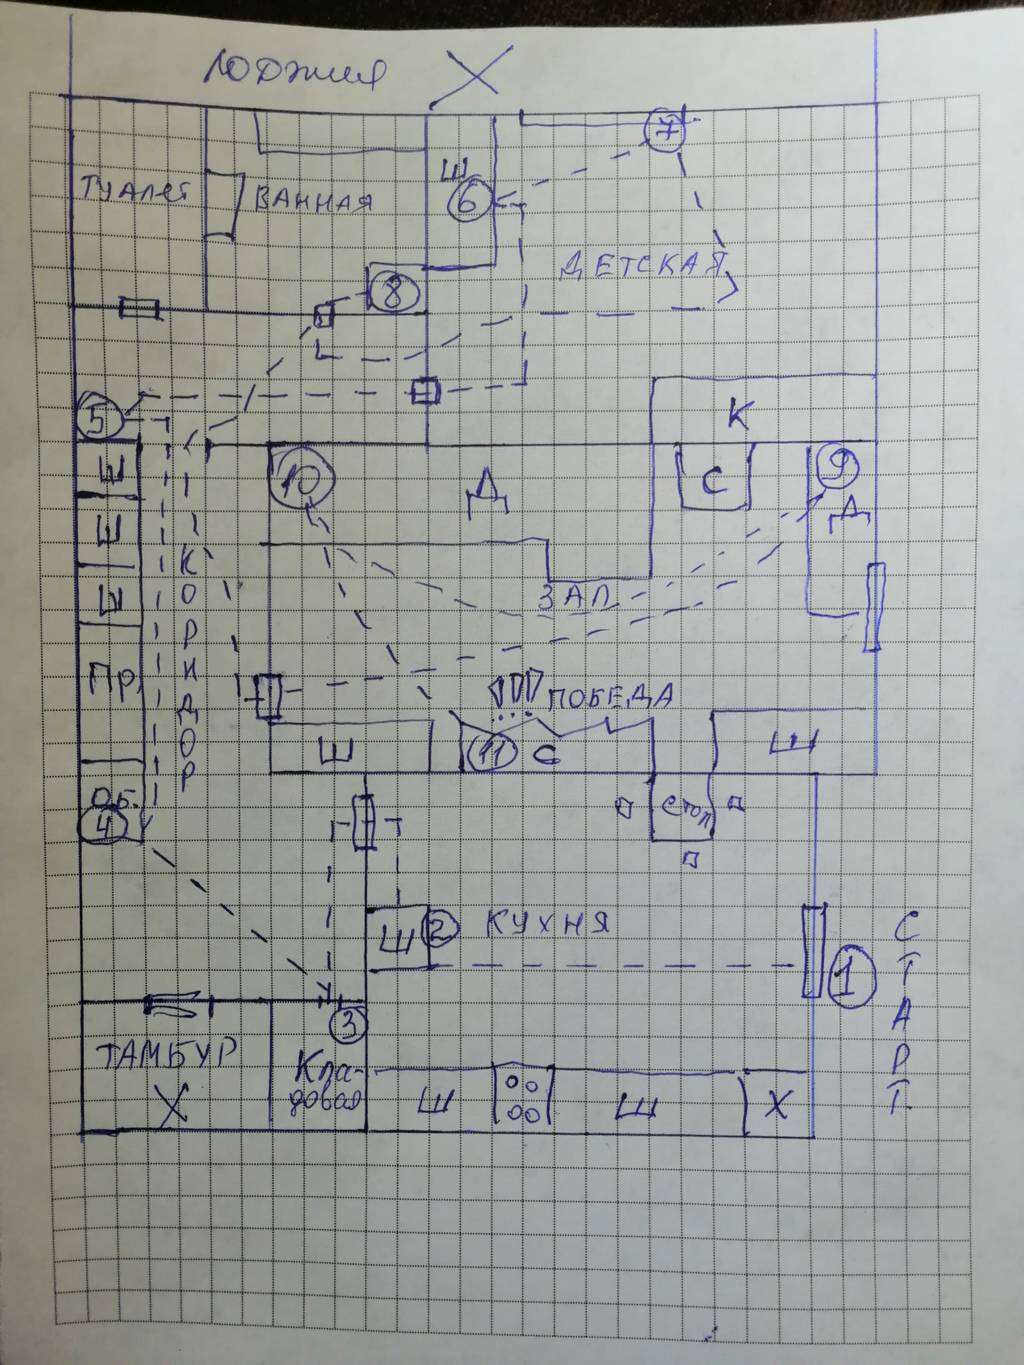 ЛОДЖИЯ X
7
Ш
6
ТУАЛЕТ
ВАННАЯ
ДЕТСКАЯ
8
5
К
Ш
10
Д
С
9
Д
Ш
Ш
ЗАЛ
КОРИДОР
ПР.
ПОБЕДА
Ш
11
С
Ш
ОБ.
4
СТОЛ
Ш
2
КУХНЯ
СТАРТ
1
3
ТАМБУР
X
Кла-
довая
Ш
Ш
X